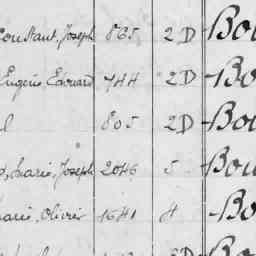 Constant, Joseph 865 2 D Bou
Eugène Edouard 744 2D Bo
l 805 2D Bou
, Marie, Joseph 2046 5 Bou
Marie, Olivier 1641 4 Bo